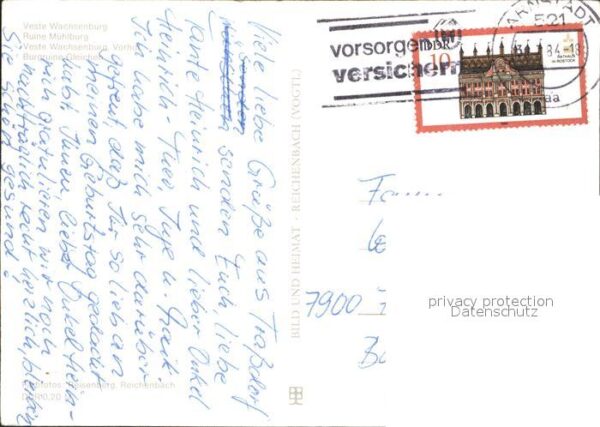 Veste Wachsenburg
Ruine Mühlburg
Veste Wachsenburg, Vorhof
Burgruine Gleichen
Viele liebe Grüße aus Traßdorf
senden Euch, liebe
Tante Heinrich und lieber Onkel
Heinrich - Theo, Inge u. Maik.
Ich habe mich sehr darüber
gefreut, daß Ihr so lieb an
meinen Geburtstag gedacht
habt. Ihnen, lieber Onkel Hein-
rich gratulieren wir noch
nachträglich recht herzlich, bleiben
Sie schön gesund!
Reichenbach
DDR 0,20
BILD UND HEIMAT · REICHENBACH (VOGTL)
vorsorgen
versichern
ARNSTADT
521
84-18
DDR
10
RATHAUS
IN ROSTOCK
aa
Fam
7900
privacy protection
Datenschutz